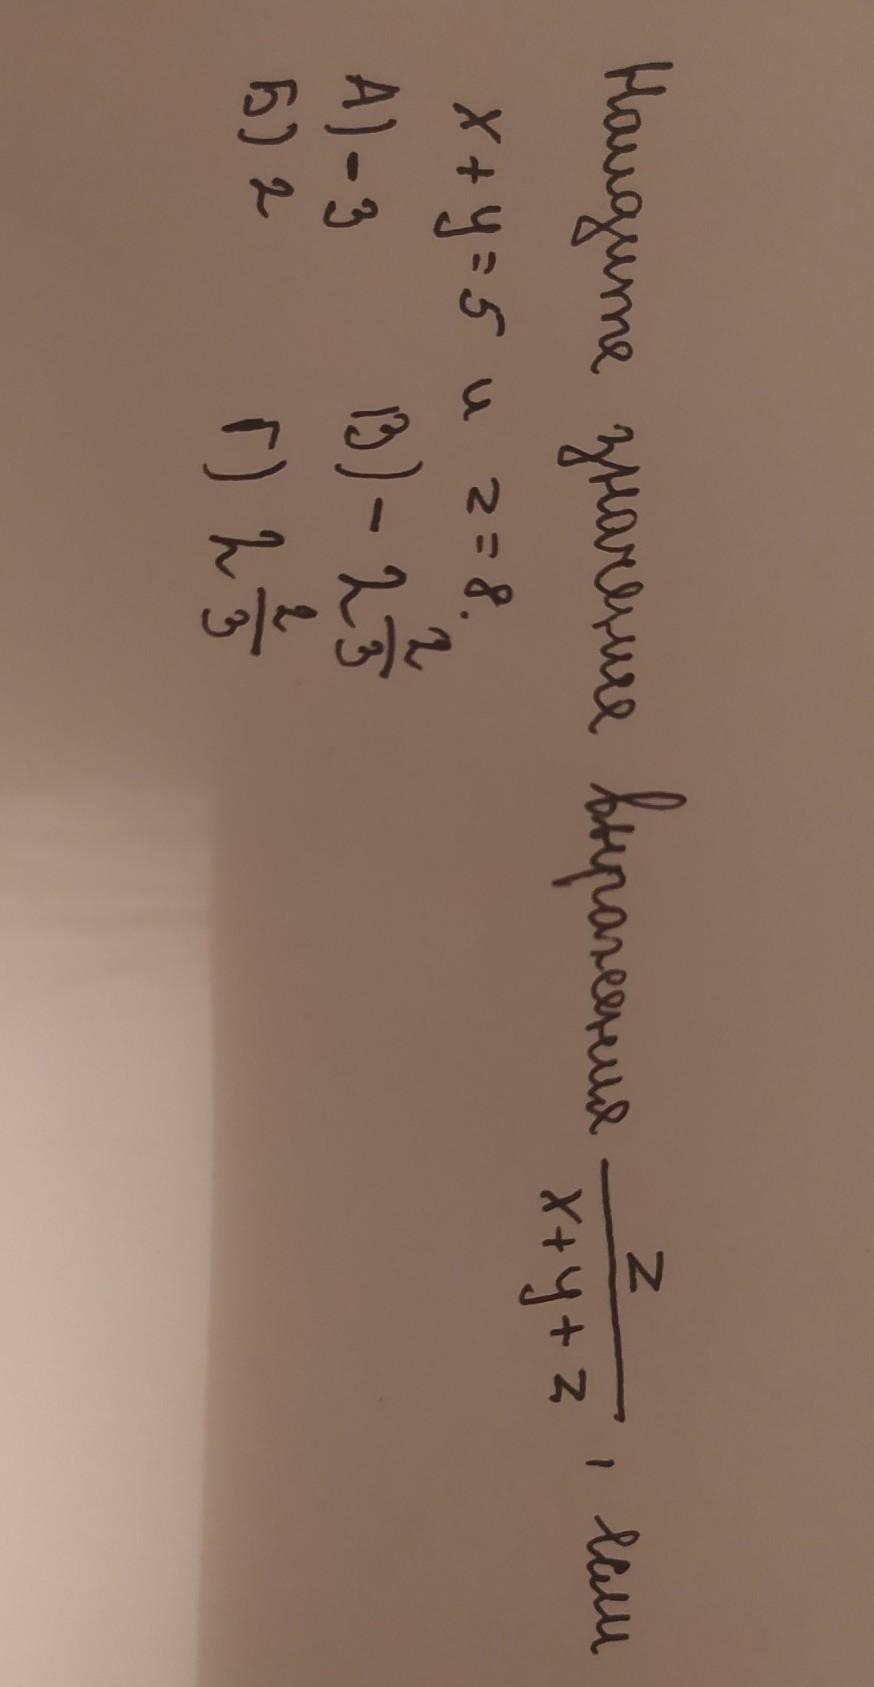 Найдите значение выражения z/(x+y+z), если
x+y=5 и z=8.
А) -3 В) -2 2/3
Б) 2 Г) 2 2/3